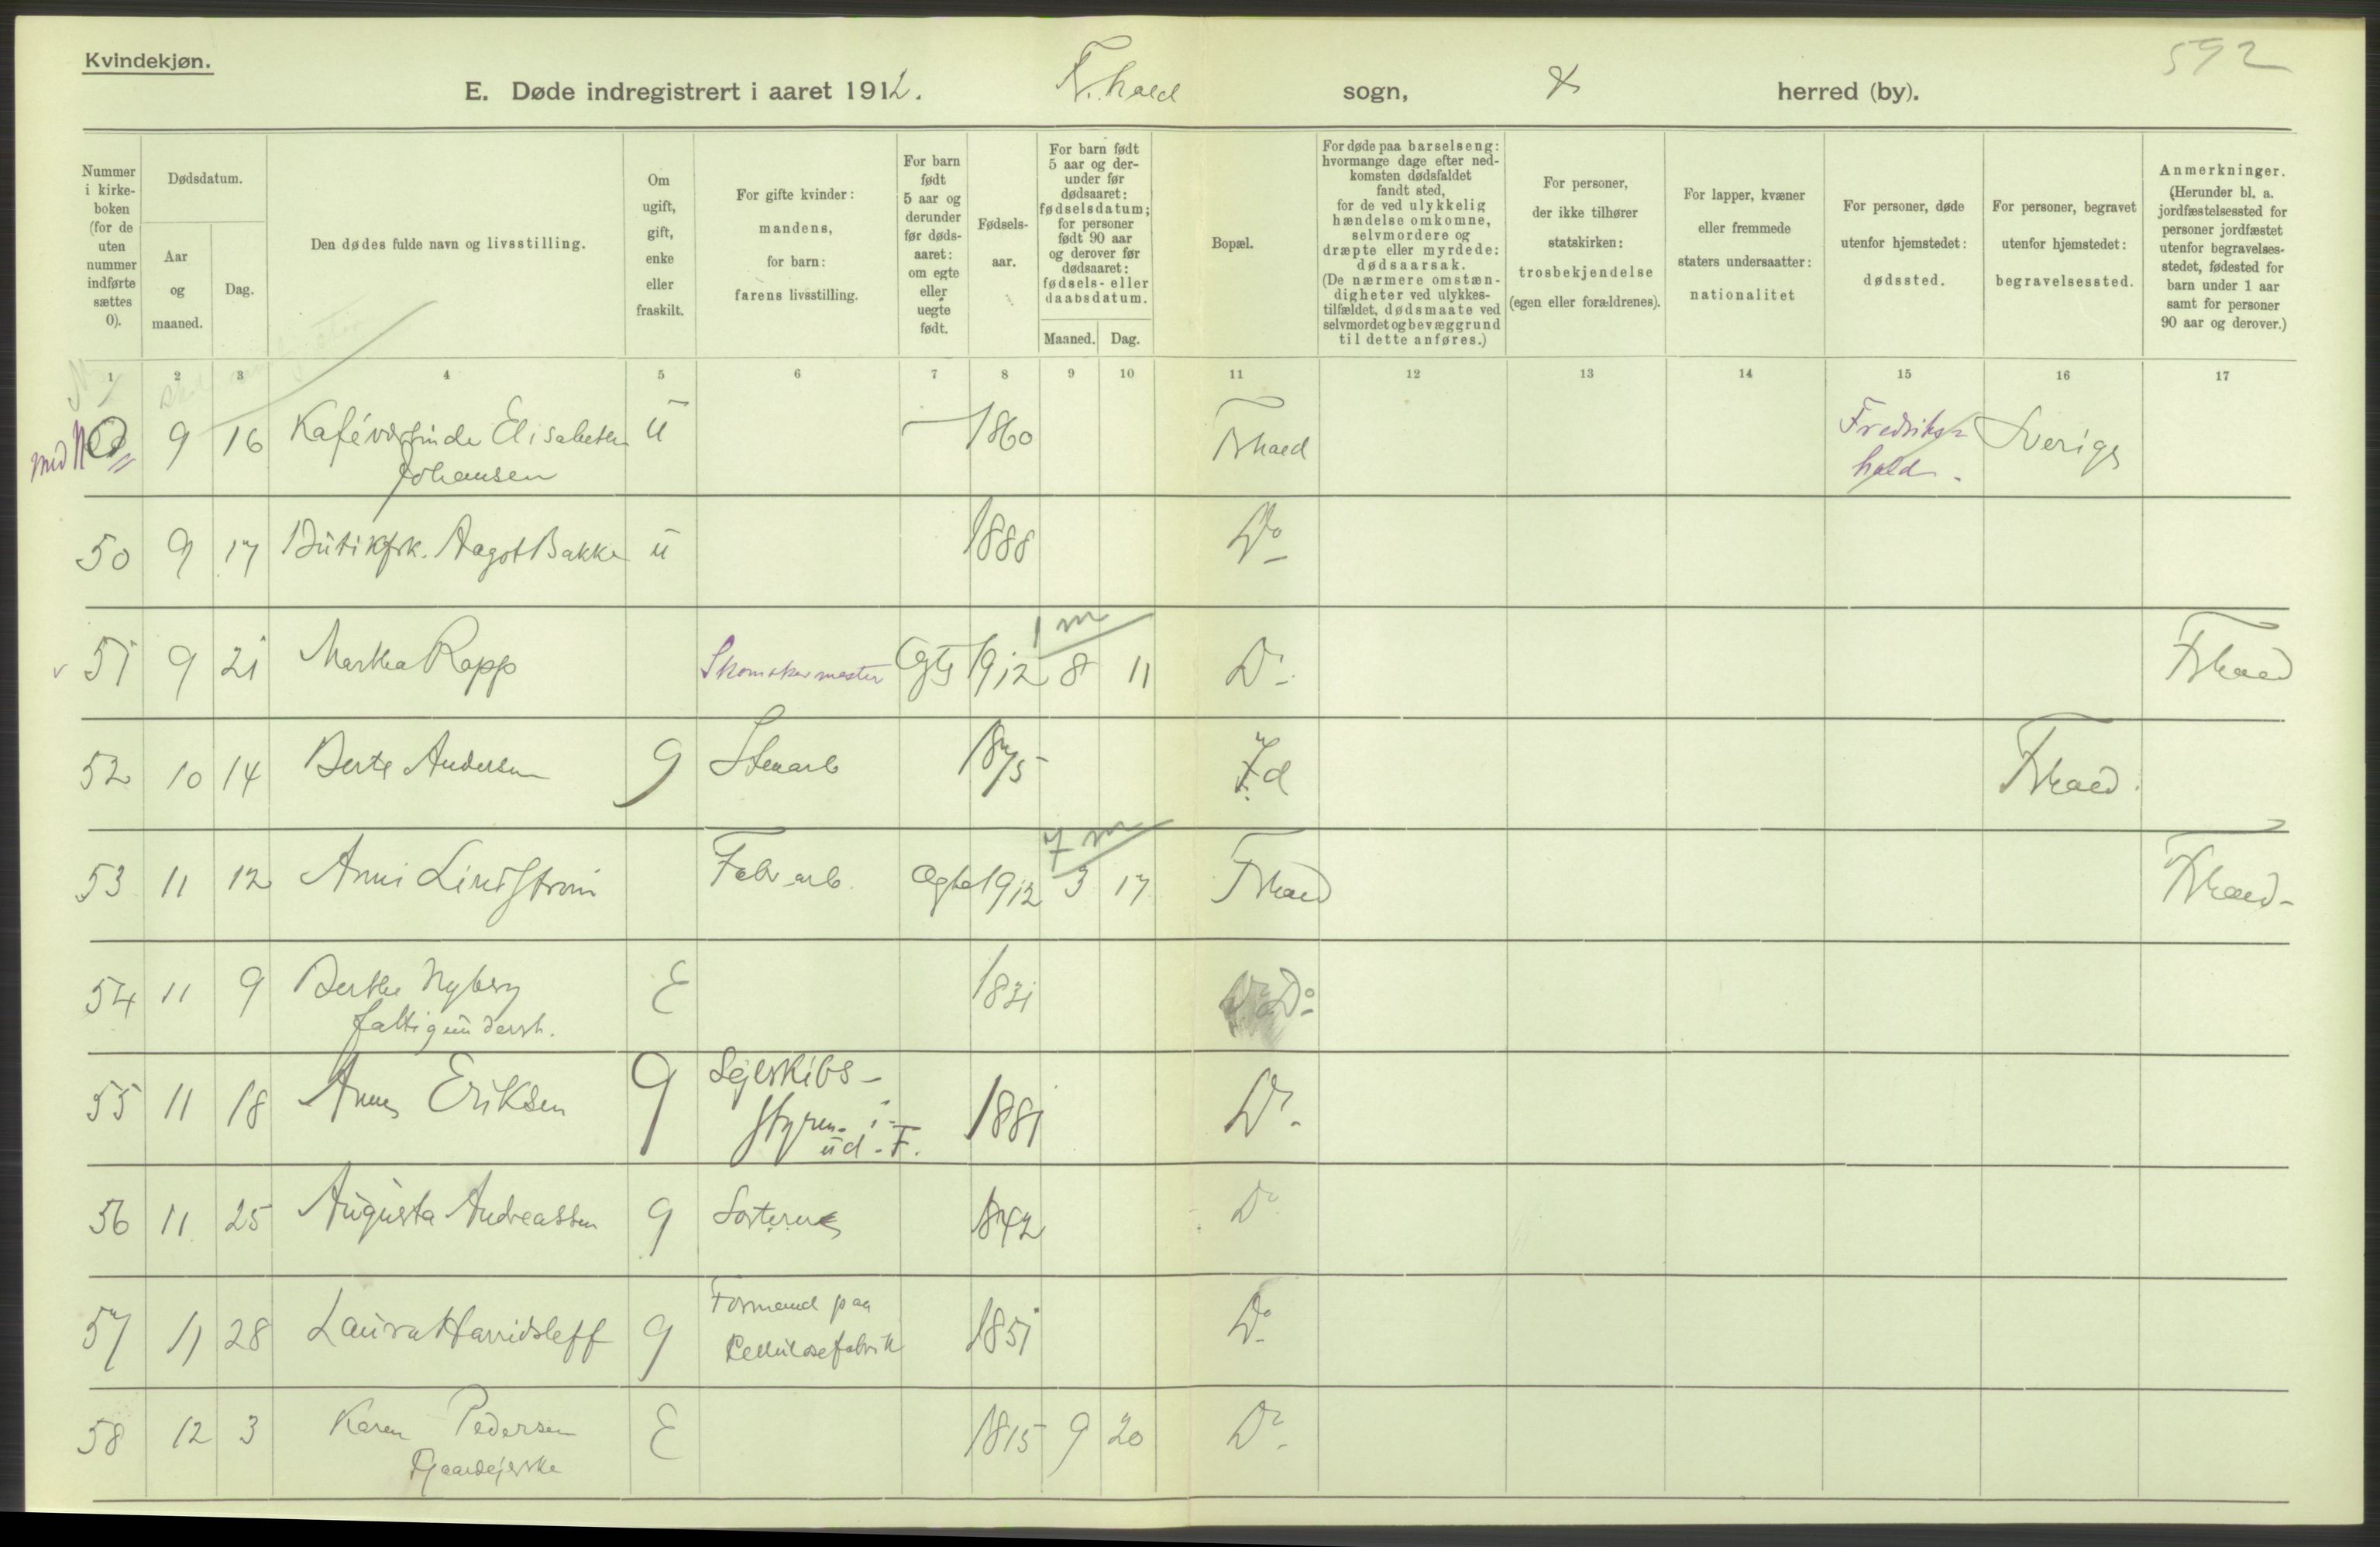 Kvindekjøn.
592
E. Døde indregistrert i aaret 1912. F.hald sogn, herred (by).
Nummer i kirkeboken (for de uten nummer indførte sættes 0).
Dødsdatum.
Aar og maaned.
Dag.
Den dødes fulde navn og livsstilling.
Om ugift, gift, enke eller fraskilt.
For gifte kvinder: mandens, for barn: farens livsstilling.
For barn født 5 aar og derunder før dødsaaret: om egte eller uegte født.
Fødselsaar.
For barn født 5 aar og derunder før dødsaaret: fødselsdatum; for personer født 90 aar og derover før dødsaaret: fødsels- eller daabsdatum.
Maaned. Dag.
Bopæl.
For døde paa barselseng: hvormange dage efter nedkomsten dødsfaldet fandt sted, for de ved ulykkelig hændelse omkomne, selvmordere og dræpte eller myrdede: dødsaarsak. (De nærmere omstændigheter ved ulykkestilfældet, dødsmaate ved selvmordet og bevæggrund til dette anføres.)
For personer, der ikke tilhører statskirken: trosbekjendelse (egen eller forældrenes).
For lapper, kvæner eller fremmede staters undersaatter: nationalitet
For personer, døde utenfor hjemstedet: dødssted.
For personer, begravet utenfor hjemstedet: begravelsessted.
Anmerkninger. (Herunder bl. a. jordfæstelsessted for personer jordfæstet utenfor begravelsesstedet, fødested for barn under 1 aar samt for personer 90 aar og derover.)
1 2 3 4 5 6 7 8 9 10 11 12 13 14 15 16 17
med 0 9 16 Kafévertinde Elisabeth Johansen u 1860 Fhald Fredrikshald. Sverige
50 9 17 Butikfrk. Aagot Bakke u 1888 Do
1 m
51 9 21 Martha Rapp Skomakermester Egte 1912 8 11 Do Fhald
52 10 14 Berte Andersen g Stenarb 1875 Id Fhald.
7 m
53 11 12 Anni Lindstrøm Fabr.arb. Egte 1912 3 17 Fhald Fhald-
54 11 9 Berthe Nyberg fattigunderst. E 1831 Do
55 11 18 Anna Eriksen g Sejlskibs-styrm. i ud.F. 1881 Do
56 11 25 Augusta Andreassen g 1842 Do
57 11 28 Laura g Formand paa Cellulosefabrik 1851 Do
58 12 3 Karen Pedersen Gaardejerske E 1815 9 20 Do